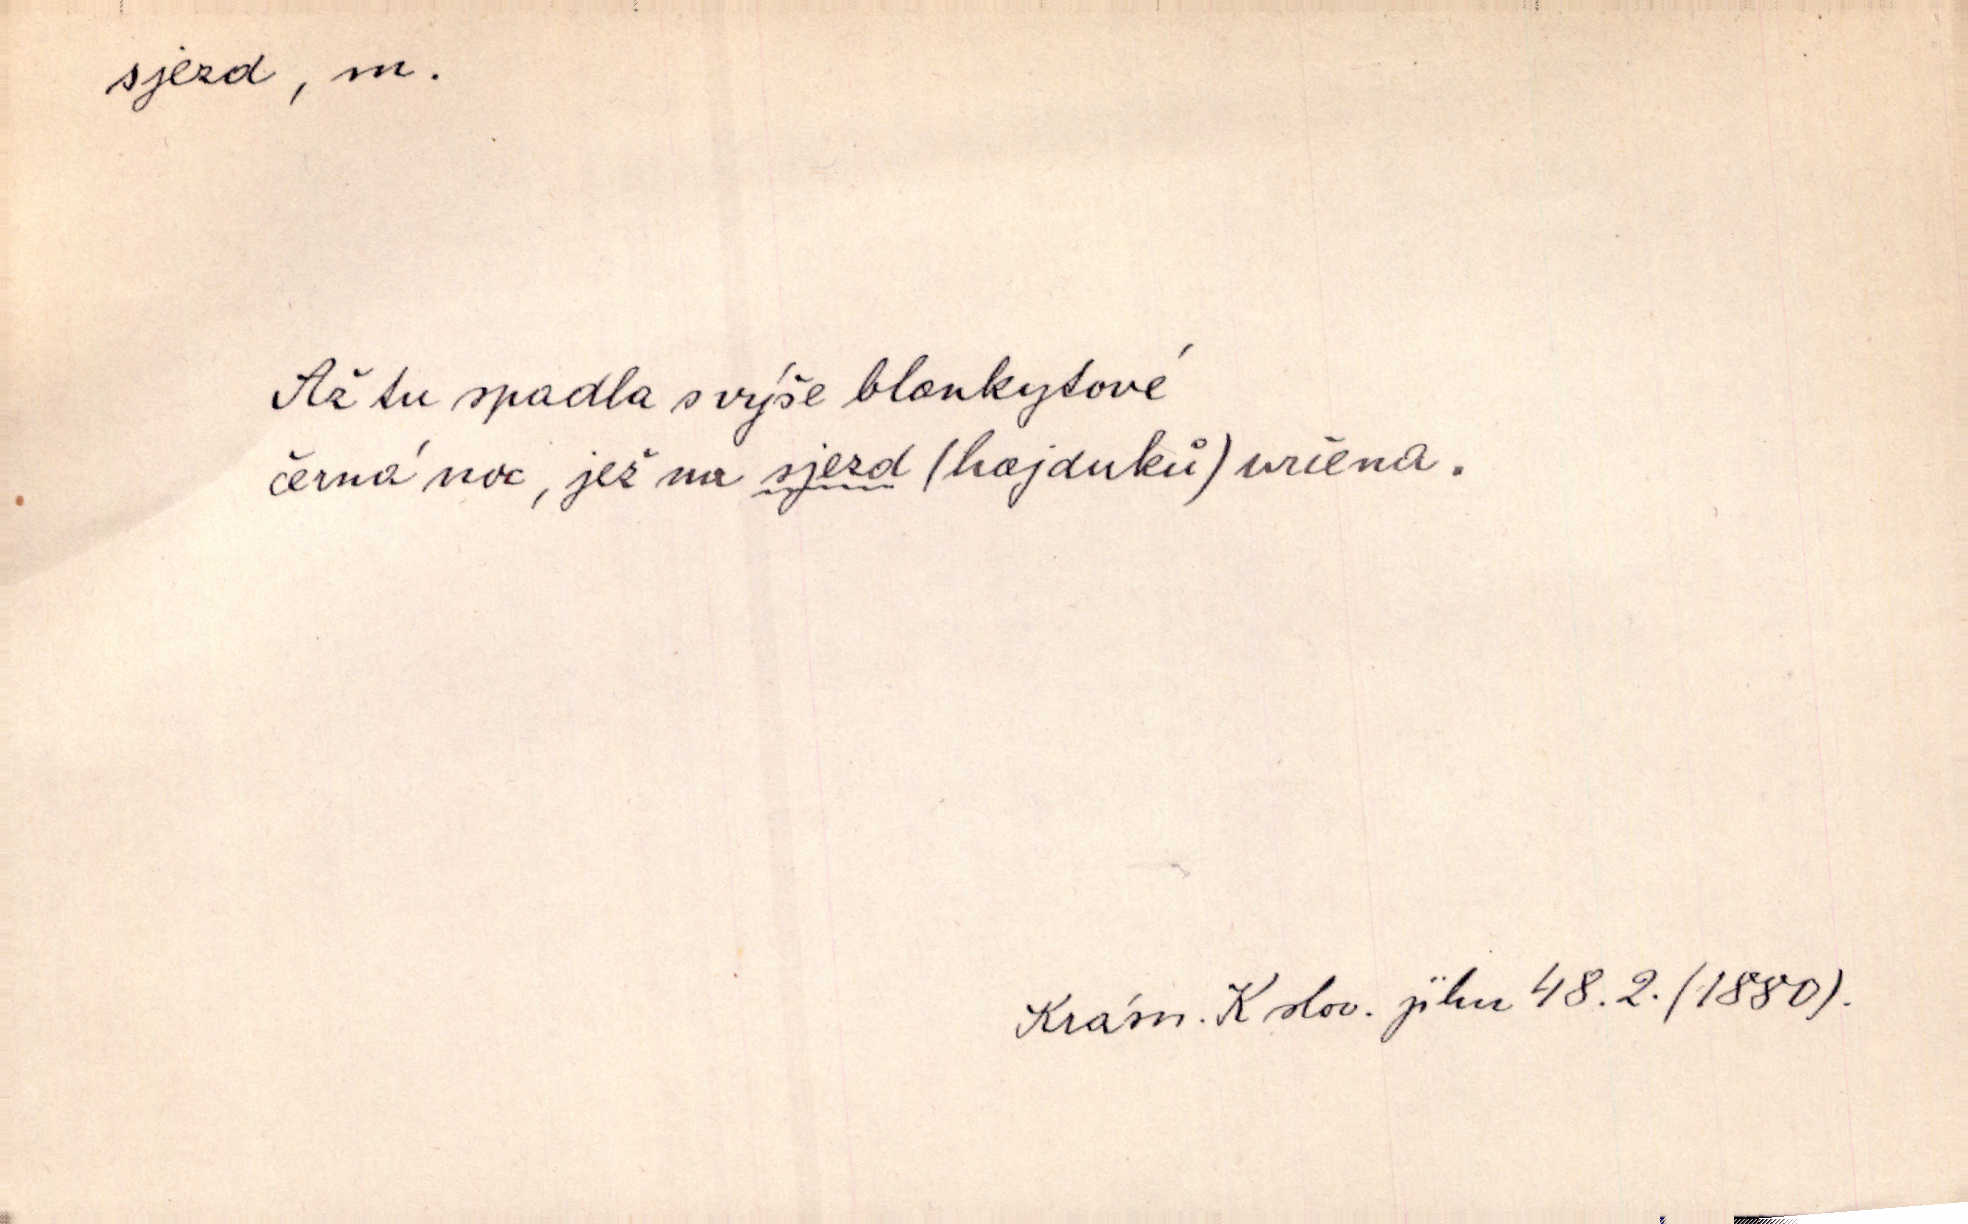 sjezd, m.
Až tu spadla s výše blankytové
černá noc, jež na sjezd (hajduků) určena.
Krásn. K slov. jihu 48.2. (1880).